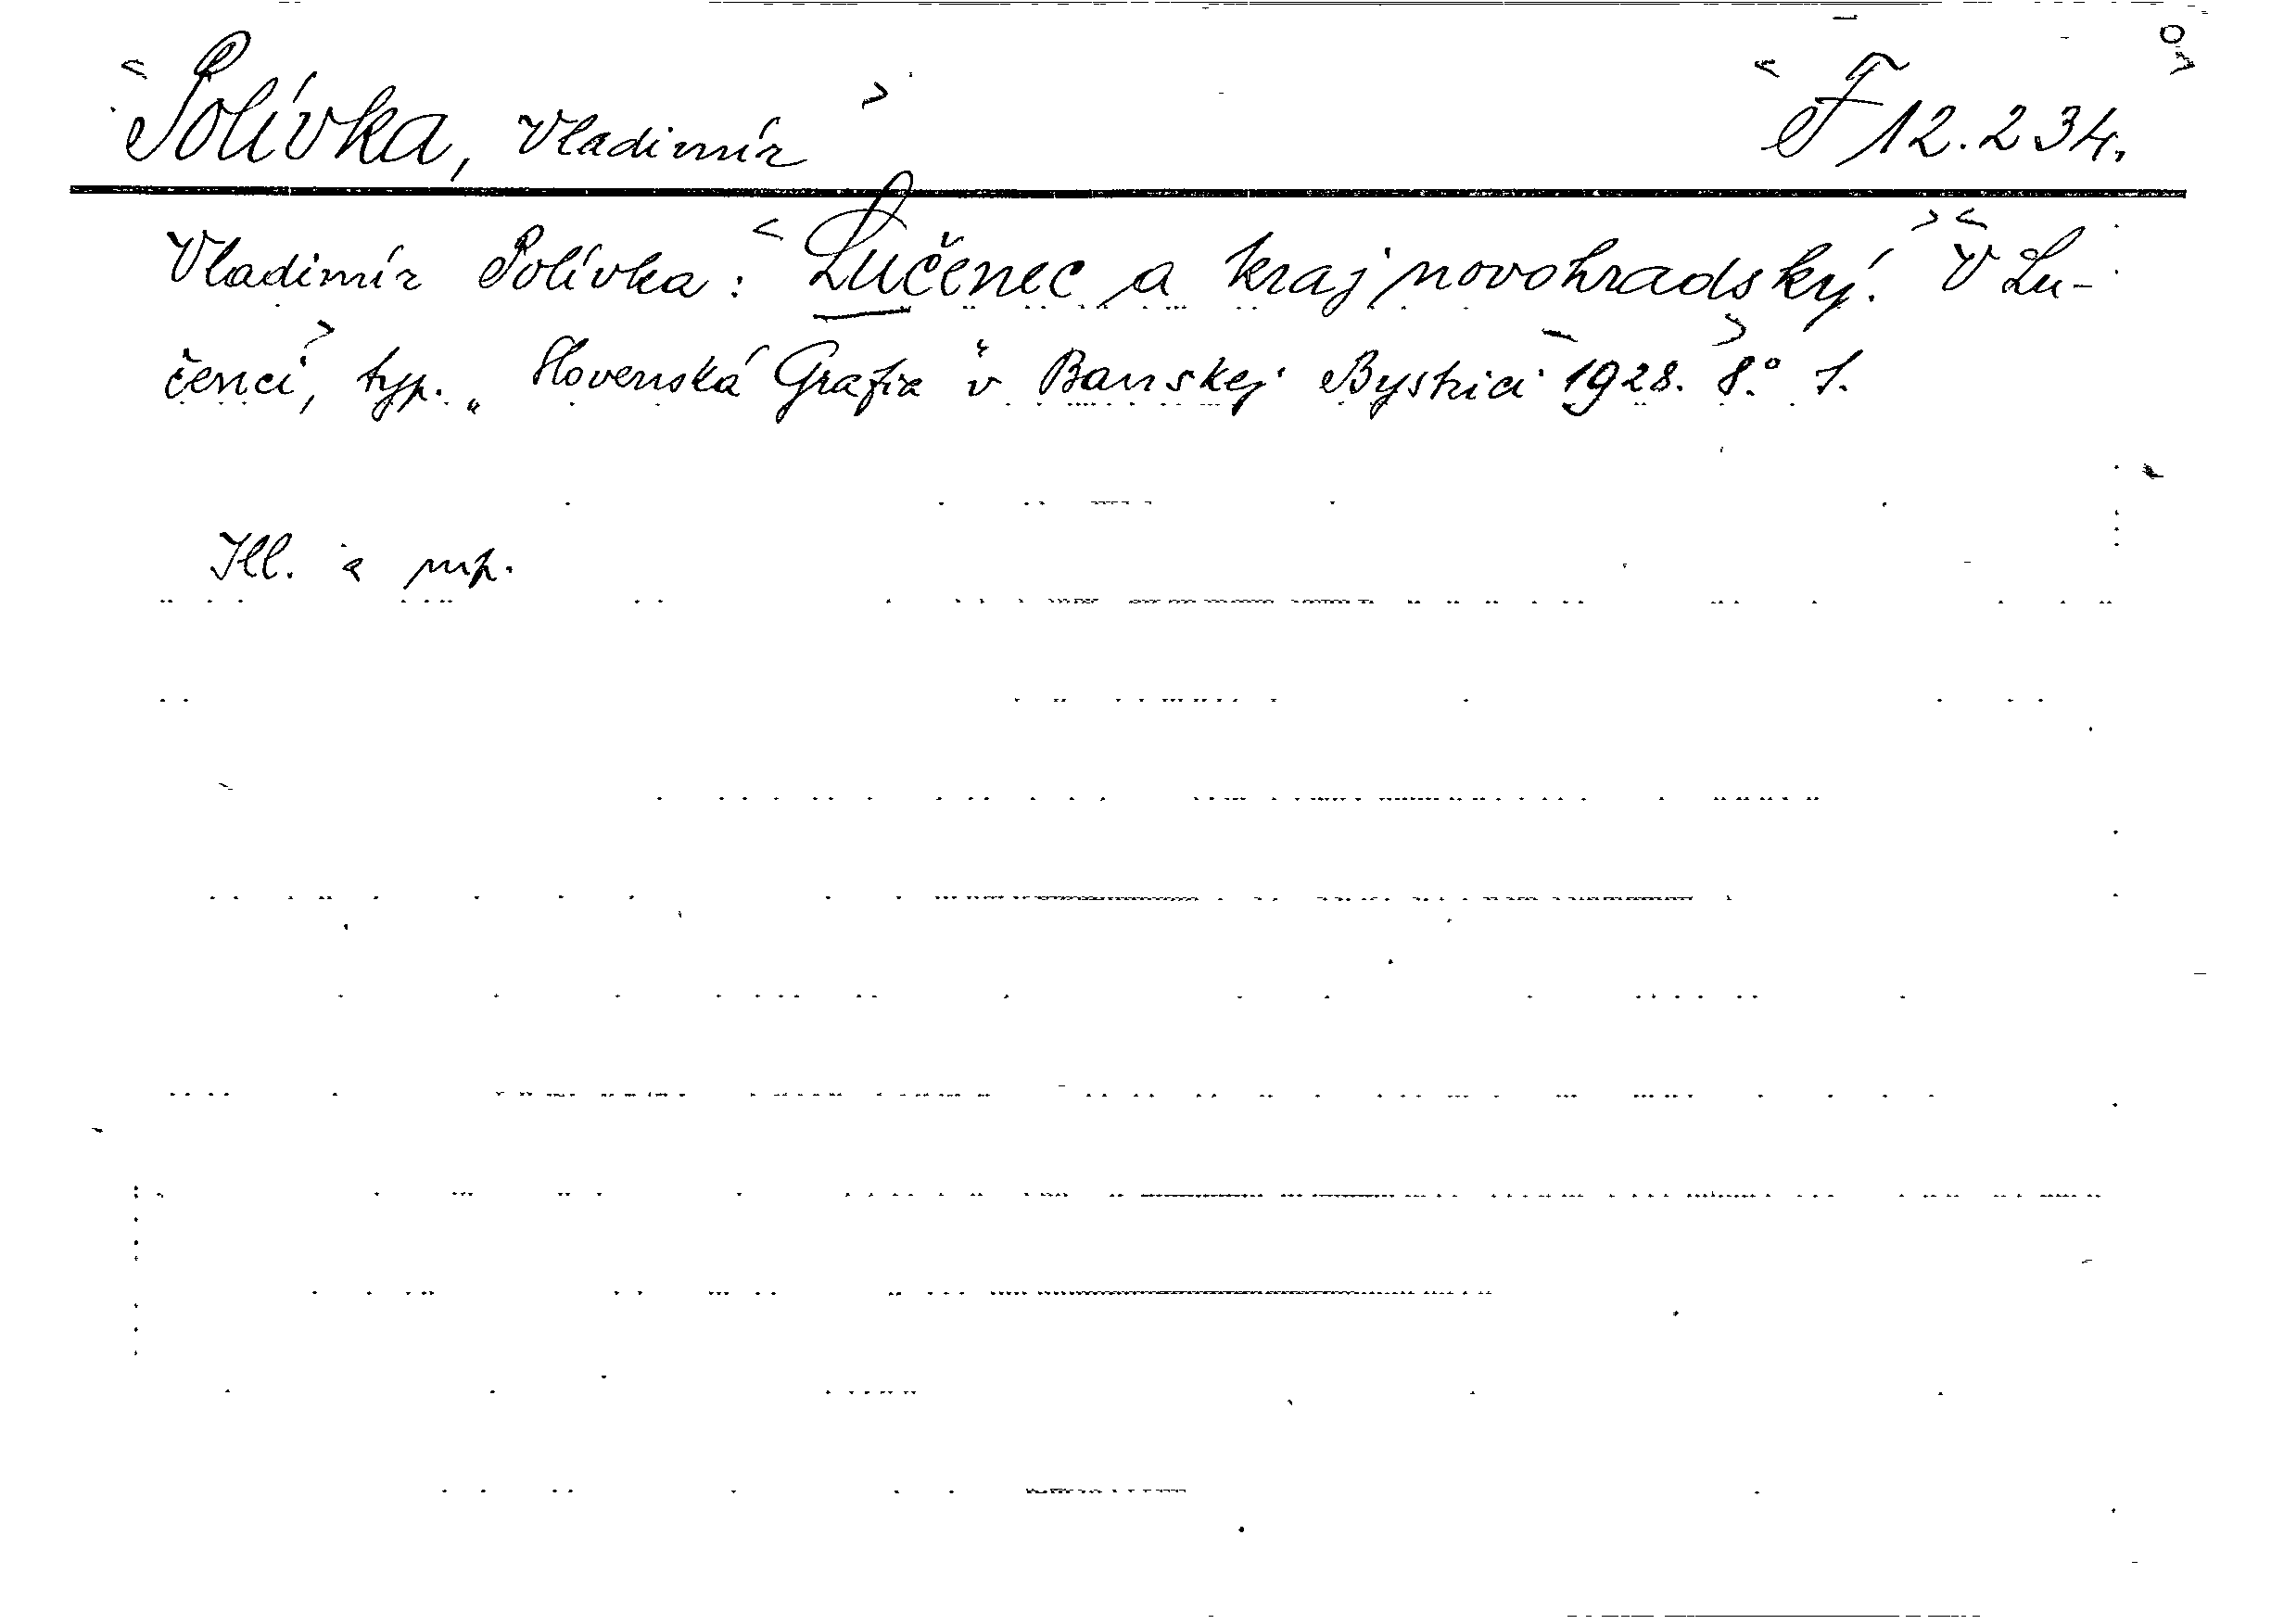 Polívka, Vladimír F 12.234.
Vladimír Polívka: Lučenec a kraj novohradský. V Lu-
čenci, typ. „Slovenská Grafia“ v Banskej Bystrici 1928. 8.° 1.
Ill. a mp.